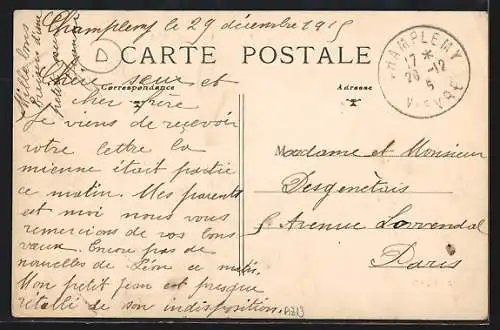 Champlemy le 29 décembre 1915
D
CARTE POSTALE
Correspondance
Adresse
CHAMPLEMY
17 *
29 -12
5
NIEVRE
Mille bons
baisers d'une
petite
Chère sœur et
cher frère
Je viens de recevoir
votre lettre la
mienne était partie
ce matin. Mes parents
et moi nous vous
remercions de vos bons
vœux. Encore pas de
nouvelles de Léon ce matin.
Mon petit Jean est presque
rétabli de son indisposition.
Madame et Monsieur
Desgenétais
Avenue Lowendal
Paris